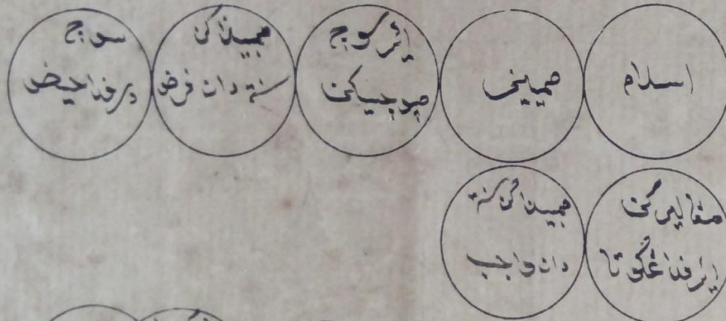 اسلام
مميز
إئر سوچ
مپوچيكن
ممبيداكن
سنة دان فرض
سوچ
درفدا حيض
مڠاليركن
اير فدا اڠݢوتا
ممبيداكن سنة
دان واجب